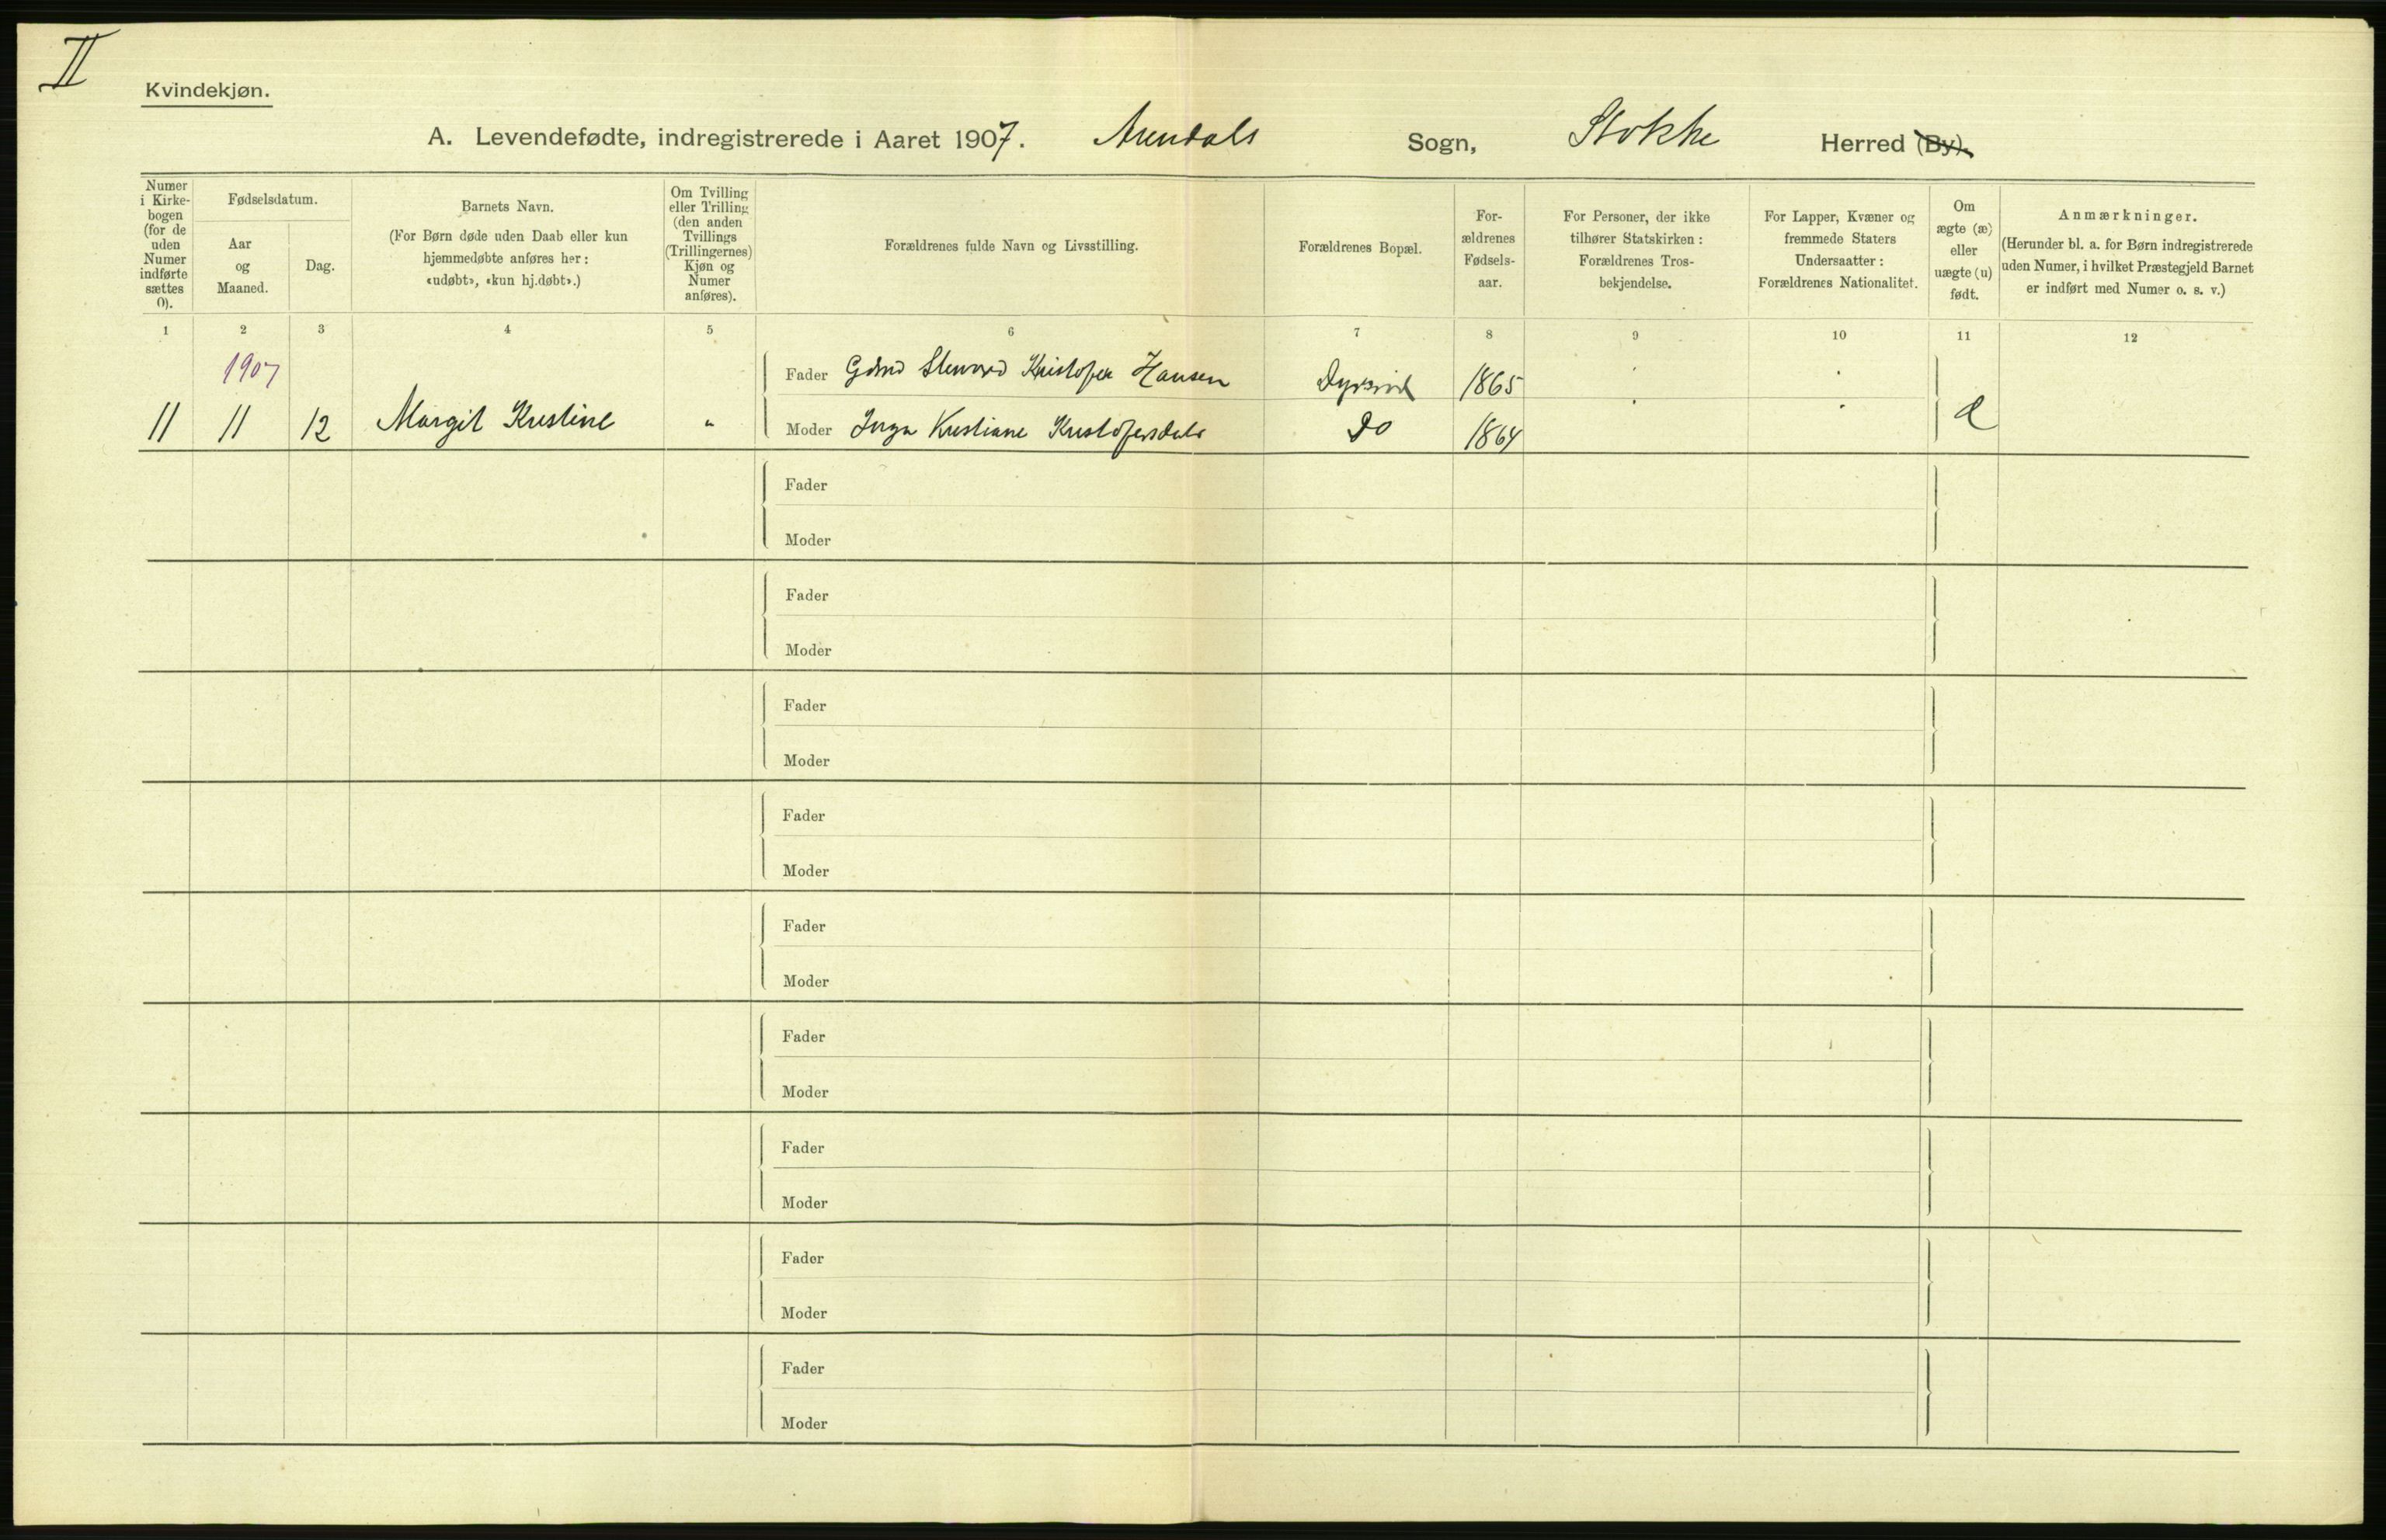 II
Kvindekjøn.
A. Levendefødte, indregistrerede i Aaret 1907. Arendals Sogn, Stokke Herred (By).
Numer i Kirke-bogen (for de uden Numer indførte sættes 0).
Fødselsdatum.
Aar og Maaned.
Dag.
Barnets Navn.
(For Børn døde uden Daab eller kun
hjemmedøbte anføres her:
«udøbt», «kun hj.døbt».)
Om Tvilling
eller Trilling
(den anden
Tvillings
(Trillingernes)
Kjøn og
Numer
anføres).
Forældrenes fulde Navn og Livsstilling.
Forældrenes Bopæl.
For-
ældrenes
Fødsels-
aar.
For Personer, der ikke
tilhører Statskirken:
Forældrenes Tros-
bekjendelse.
For Lapper, Kvæner og
fremmede Staters
Undersaatter:
Forældrenes Nationalitet.
Om
ægte (æ)
eller
uægte (u)
født.
Anmærkninger.
(Herunder bl. a. for Børn indregistrerede
uden Numer, i hvilket Præstegjeld Barnet
er indført med Numer o. s. v.)
1 2 3 4 5 6 7 8 9 10 11 12
1907
Fader Kristofer Hansen 1865
11 11 12 Margit Kristine " Moder Inga Kristiane Kristofersdatr Do 1864
Fader
Moder
Fader
Moder
Fader
Moder
Fader
Moder
Fader
Moder
Fader
Moder
Fader
Moder
Fader
Moder
Fader
Moder